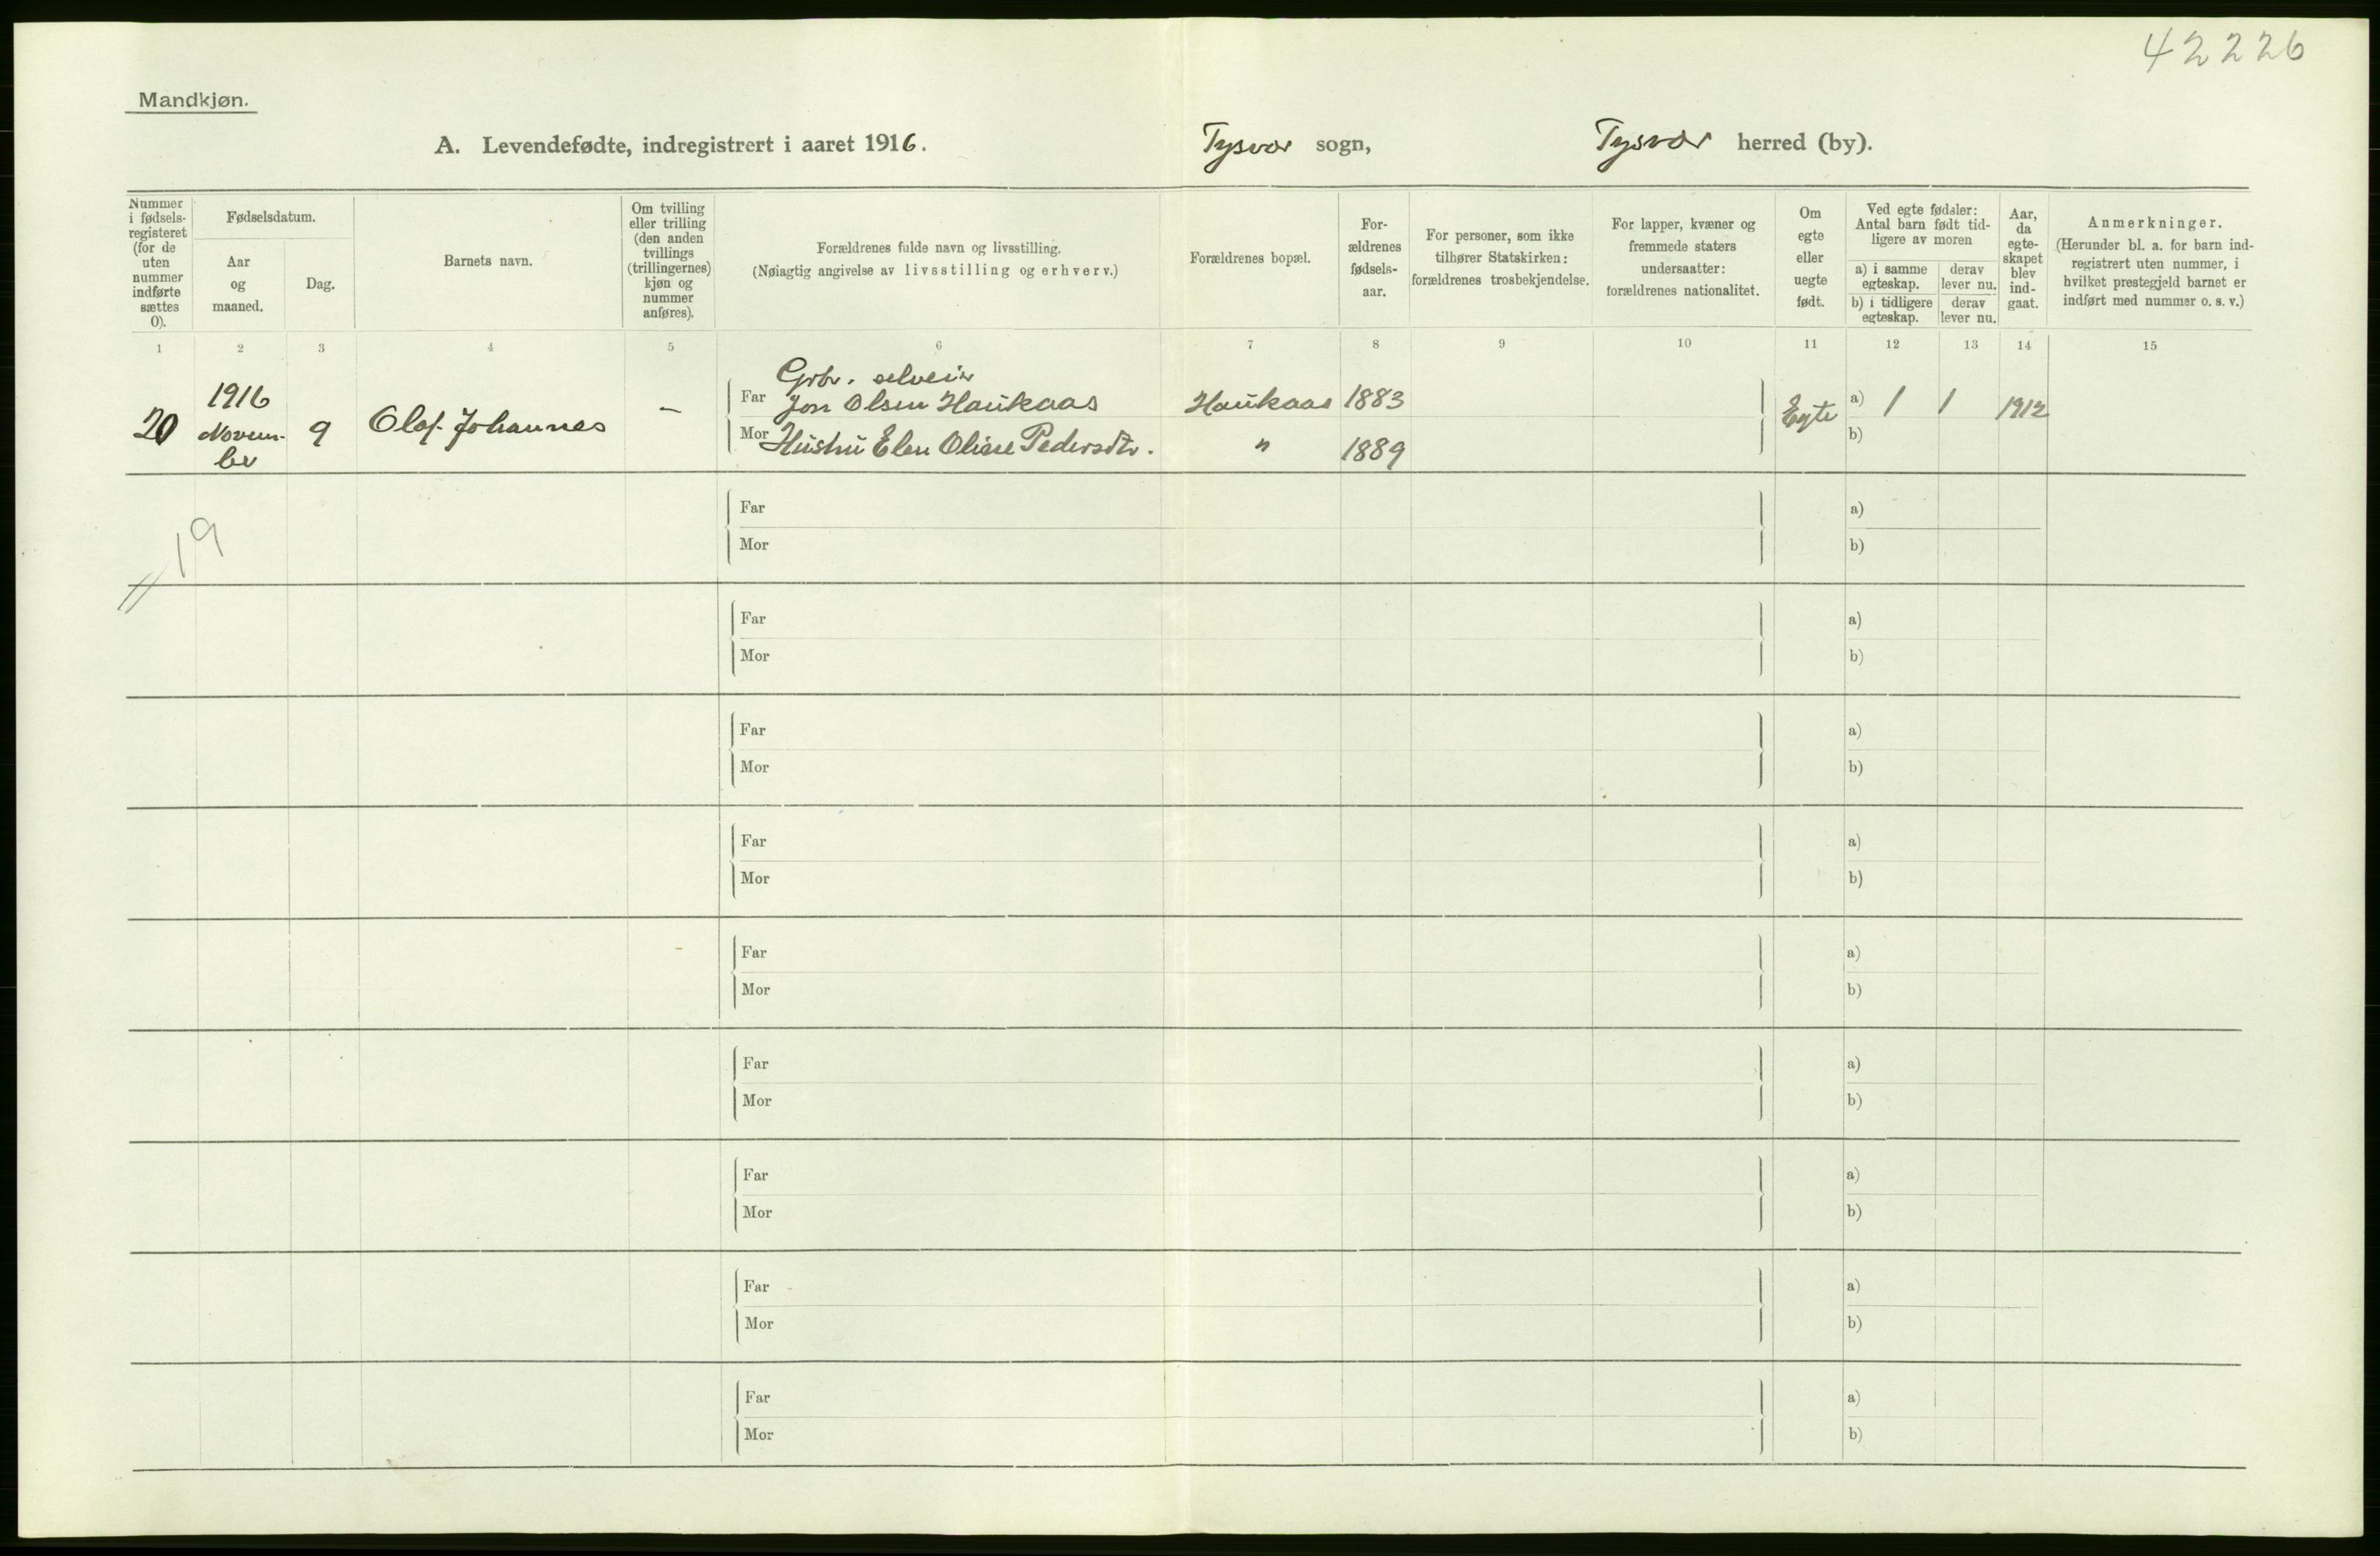 42226
Mandkjøn.
A. Levendefødte, indregistrert i aaret 1916. Tysvær sogn, Tysvær herred (by).
Nummer i fødsels-registeret (for de uten nummer indførte sættes 0).
Fødselsdatum.
Aar og maaned.
Dag.
Barnets navn.
Om tvilling eller trilling (den anden tvillings (trillingernes) kjøn og nummer anføres).
Forældrenes fulde navn og livsstilling.
(Nøiagtig angivelse av livsstilling og erhverv.)
Forældrenes bopæl.
For-ældrenes fødsels-aar.
For personer, som ikke tilhører Statskirken: forældrenes trosbekjendelse.
For lapper, kvæner og fremmede staters undersaatter: forældrenes nationalitet.
Om egte eller uegte født.
Ved egte fødsler: Antal barn født tid-ligere av moren
a) i samme egteskap.
derav lever nu.
b) i tidligere egteskap.
derav lever nu.
Aar, da egte-skapet blev ind-gaat.
Anmerkninger.
(Herunder bl. a. for barn ind-registrert uten nummer, i hvilket prestegjeld barnet er indført med nummer o. s. v.)
1 2 3 4 5 6 7 8 9 10 11 12 13 14 15
Grbr. selveier
20 1916 Novem-ber 9 Olaf Johannes – Far Jon Olsen Haukaas Haukaas 1883 Egte a) 1 1 1912
Mor Hustru Elen Oliese Pedersdtr. " 1889 b)
19
Far a)
Mor b)
Far a)
Mor b)
Far a)
Mor b)
Far a)
Mor b)
Far a)
Mor b)
Far a)
Mor b)
Far a)
Mor b)
Far a)
Mor b)
Far a)
Mor b)